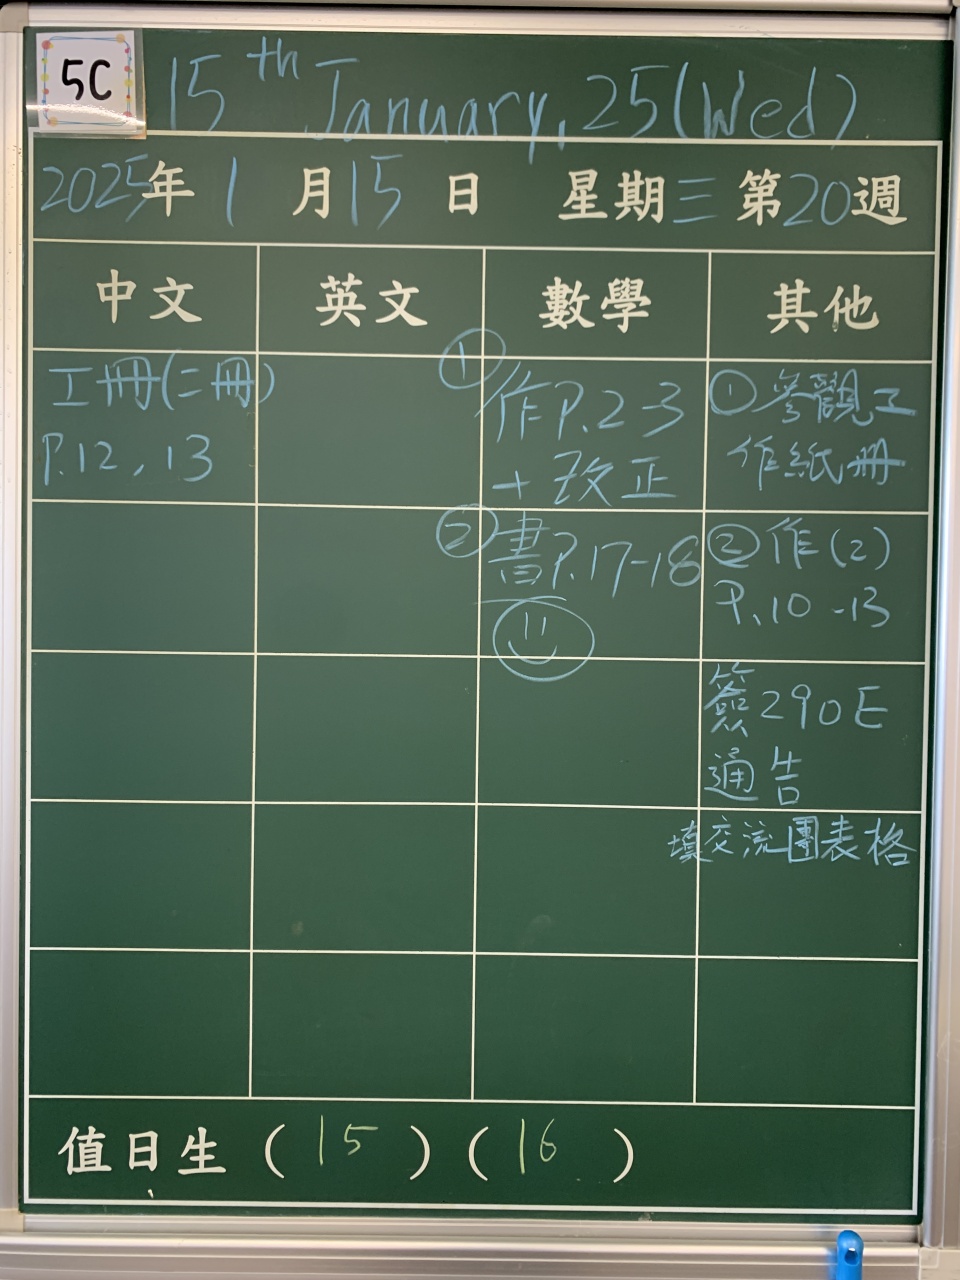 5C
15th January, 25 (Wed)
2025年 1 月 15 日 星期三 第20週
中文 英文 數學 其他
工冊(二冊)
P.12, 13
① 作P.2-3
+ 改正
② 書P.17-18
① 參觀工
作紙冊
② 作(2)
P.10-13
簽290E
通告
填交流團表格
值日生 (15) (16)